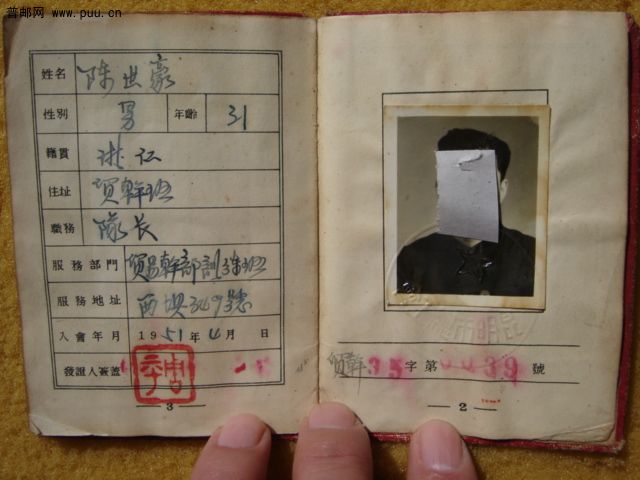 普邮网 www.puu.cn
姓名 陈世豪
性別 男 年齡 31
籍貫
住址 貿幹班
職務 隊长
服務部門 貿易幹部訓練班
服務地址 西壩349號
入會年月 1951年4月 日
發證人簽蓋
3
貿幹 35 字第 0039 號
2